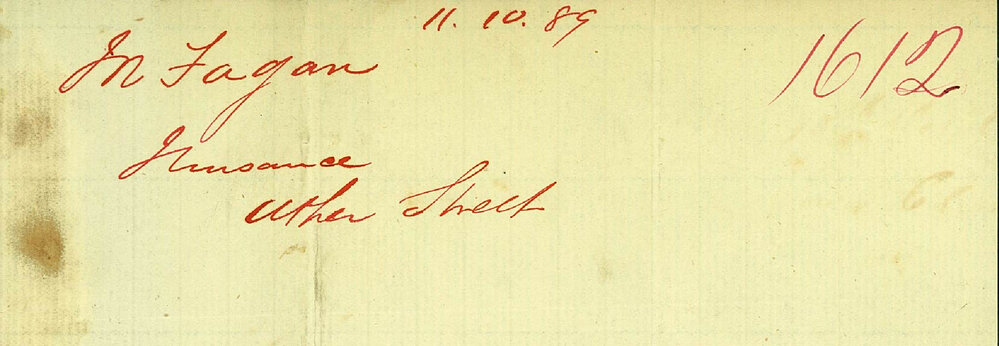 11. 10. 89
M Fagan
1612
Nuisance
Uther Street